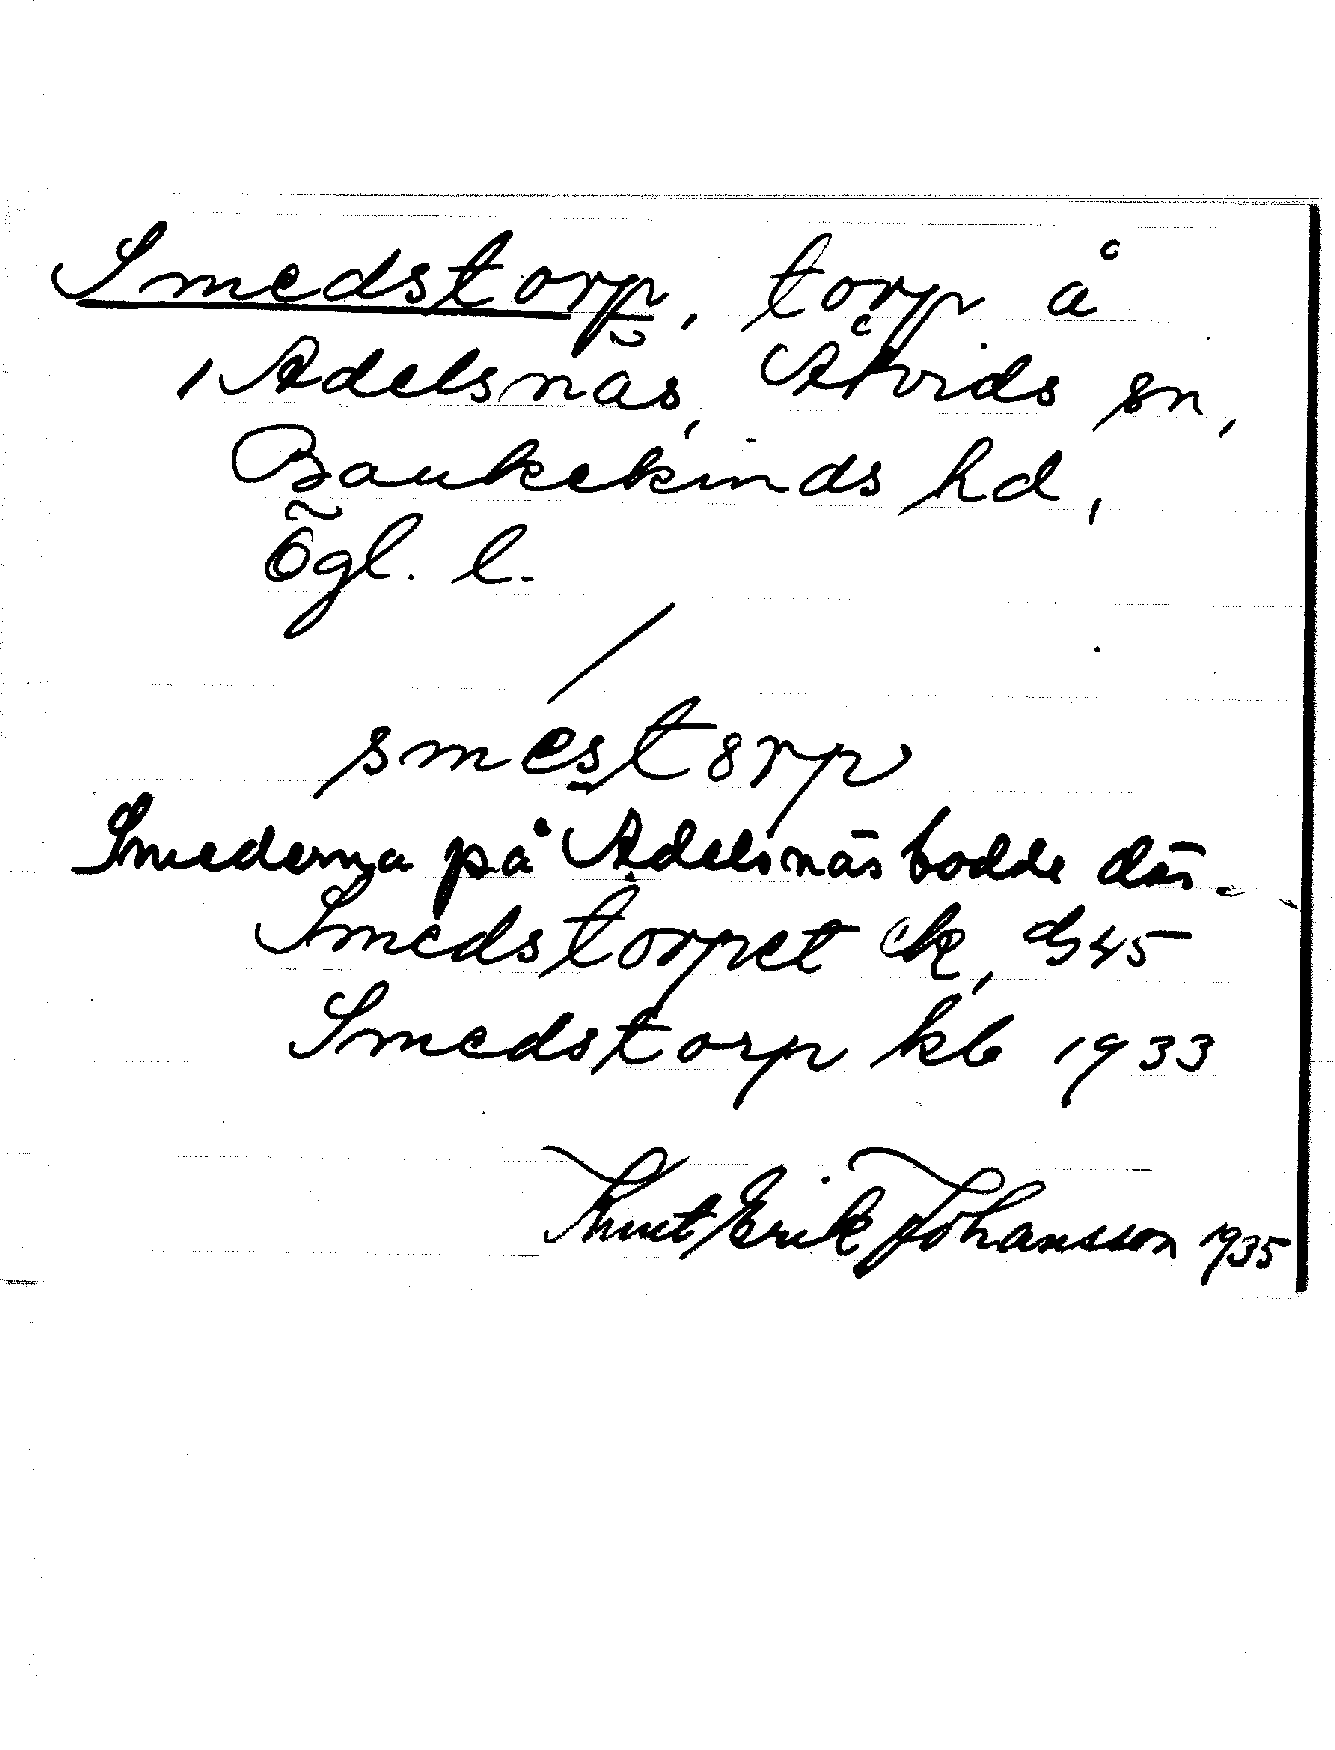 Smedstorp, torp å
Adelsnäs, Åtvids sn,
Bankekinds hd,
Ögl. l.
/
smestorp
Smederna på Adelsnäs bodde där.
Smedstorpet ek, G45
Smedstorp kb 1933
Knut Erik Johansson 1935